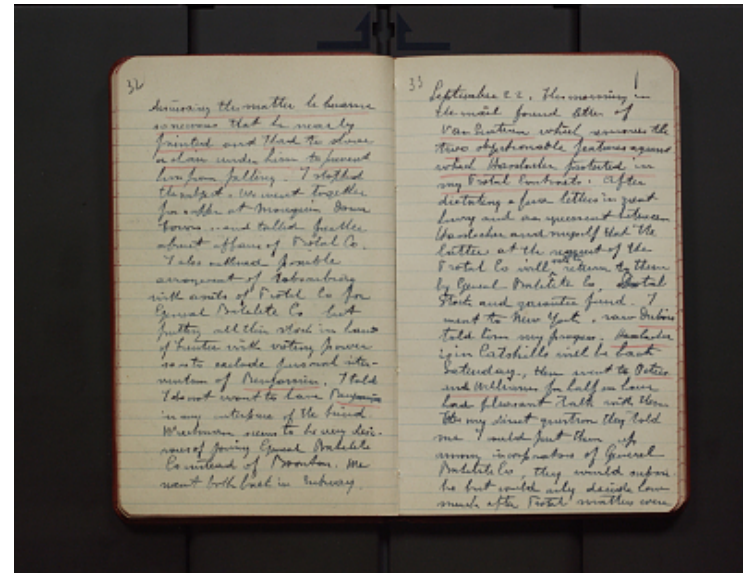 32
discussing the matter he became
so nervous that he nearly
fainted and I had to shove
a chair under him to prevent
him from falling. I stopped
the subject. We went together
for supper at Mouquin Down
town. and talked further
about affairs of Protal Co.
I also outlined possible
arrangement of subscribing
with assets of Protal Co for
General Bakelite Co but
putting all this stock in hands
of trustee with voting power
so as to exclude personal inter-
vention of Benjamin. I told
I do not want to have Benjamin
in any interference of the kind
Wiechmann seems to be very desi-
rous of joining General Bakelite
Co instead of Boonton. We
went both back in subway.
33
September 22. This morning in
the mail found letter of
which removes the
two objectionable features against
which Hasslacher protested in
my Protal Contracts. After
dictating a few letters in great
hurry and an agreement between
Hasslacher and myself that the
latter at the request of the
Protal Co will return to them
by General Bakelite Co, Protal
Stock and guarantee fund. I
went to New York, saw Dubois
told him my progress. Hasslacher
is in Catskills will be back
Saturday. Then went to Peters
and Williams for half an hour
had pleasant talk with them
To my direct question they told
me I could put them up
among incorporators of General
Bakelite Co. they would subscri-
be but could only decide how
much after Protal matters were